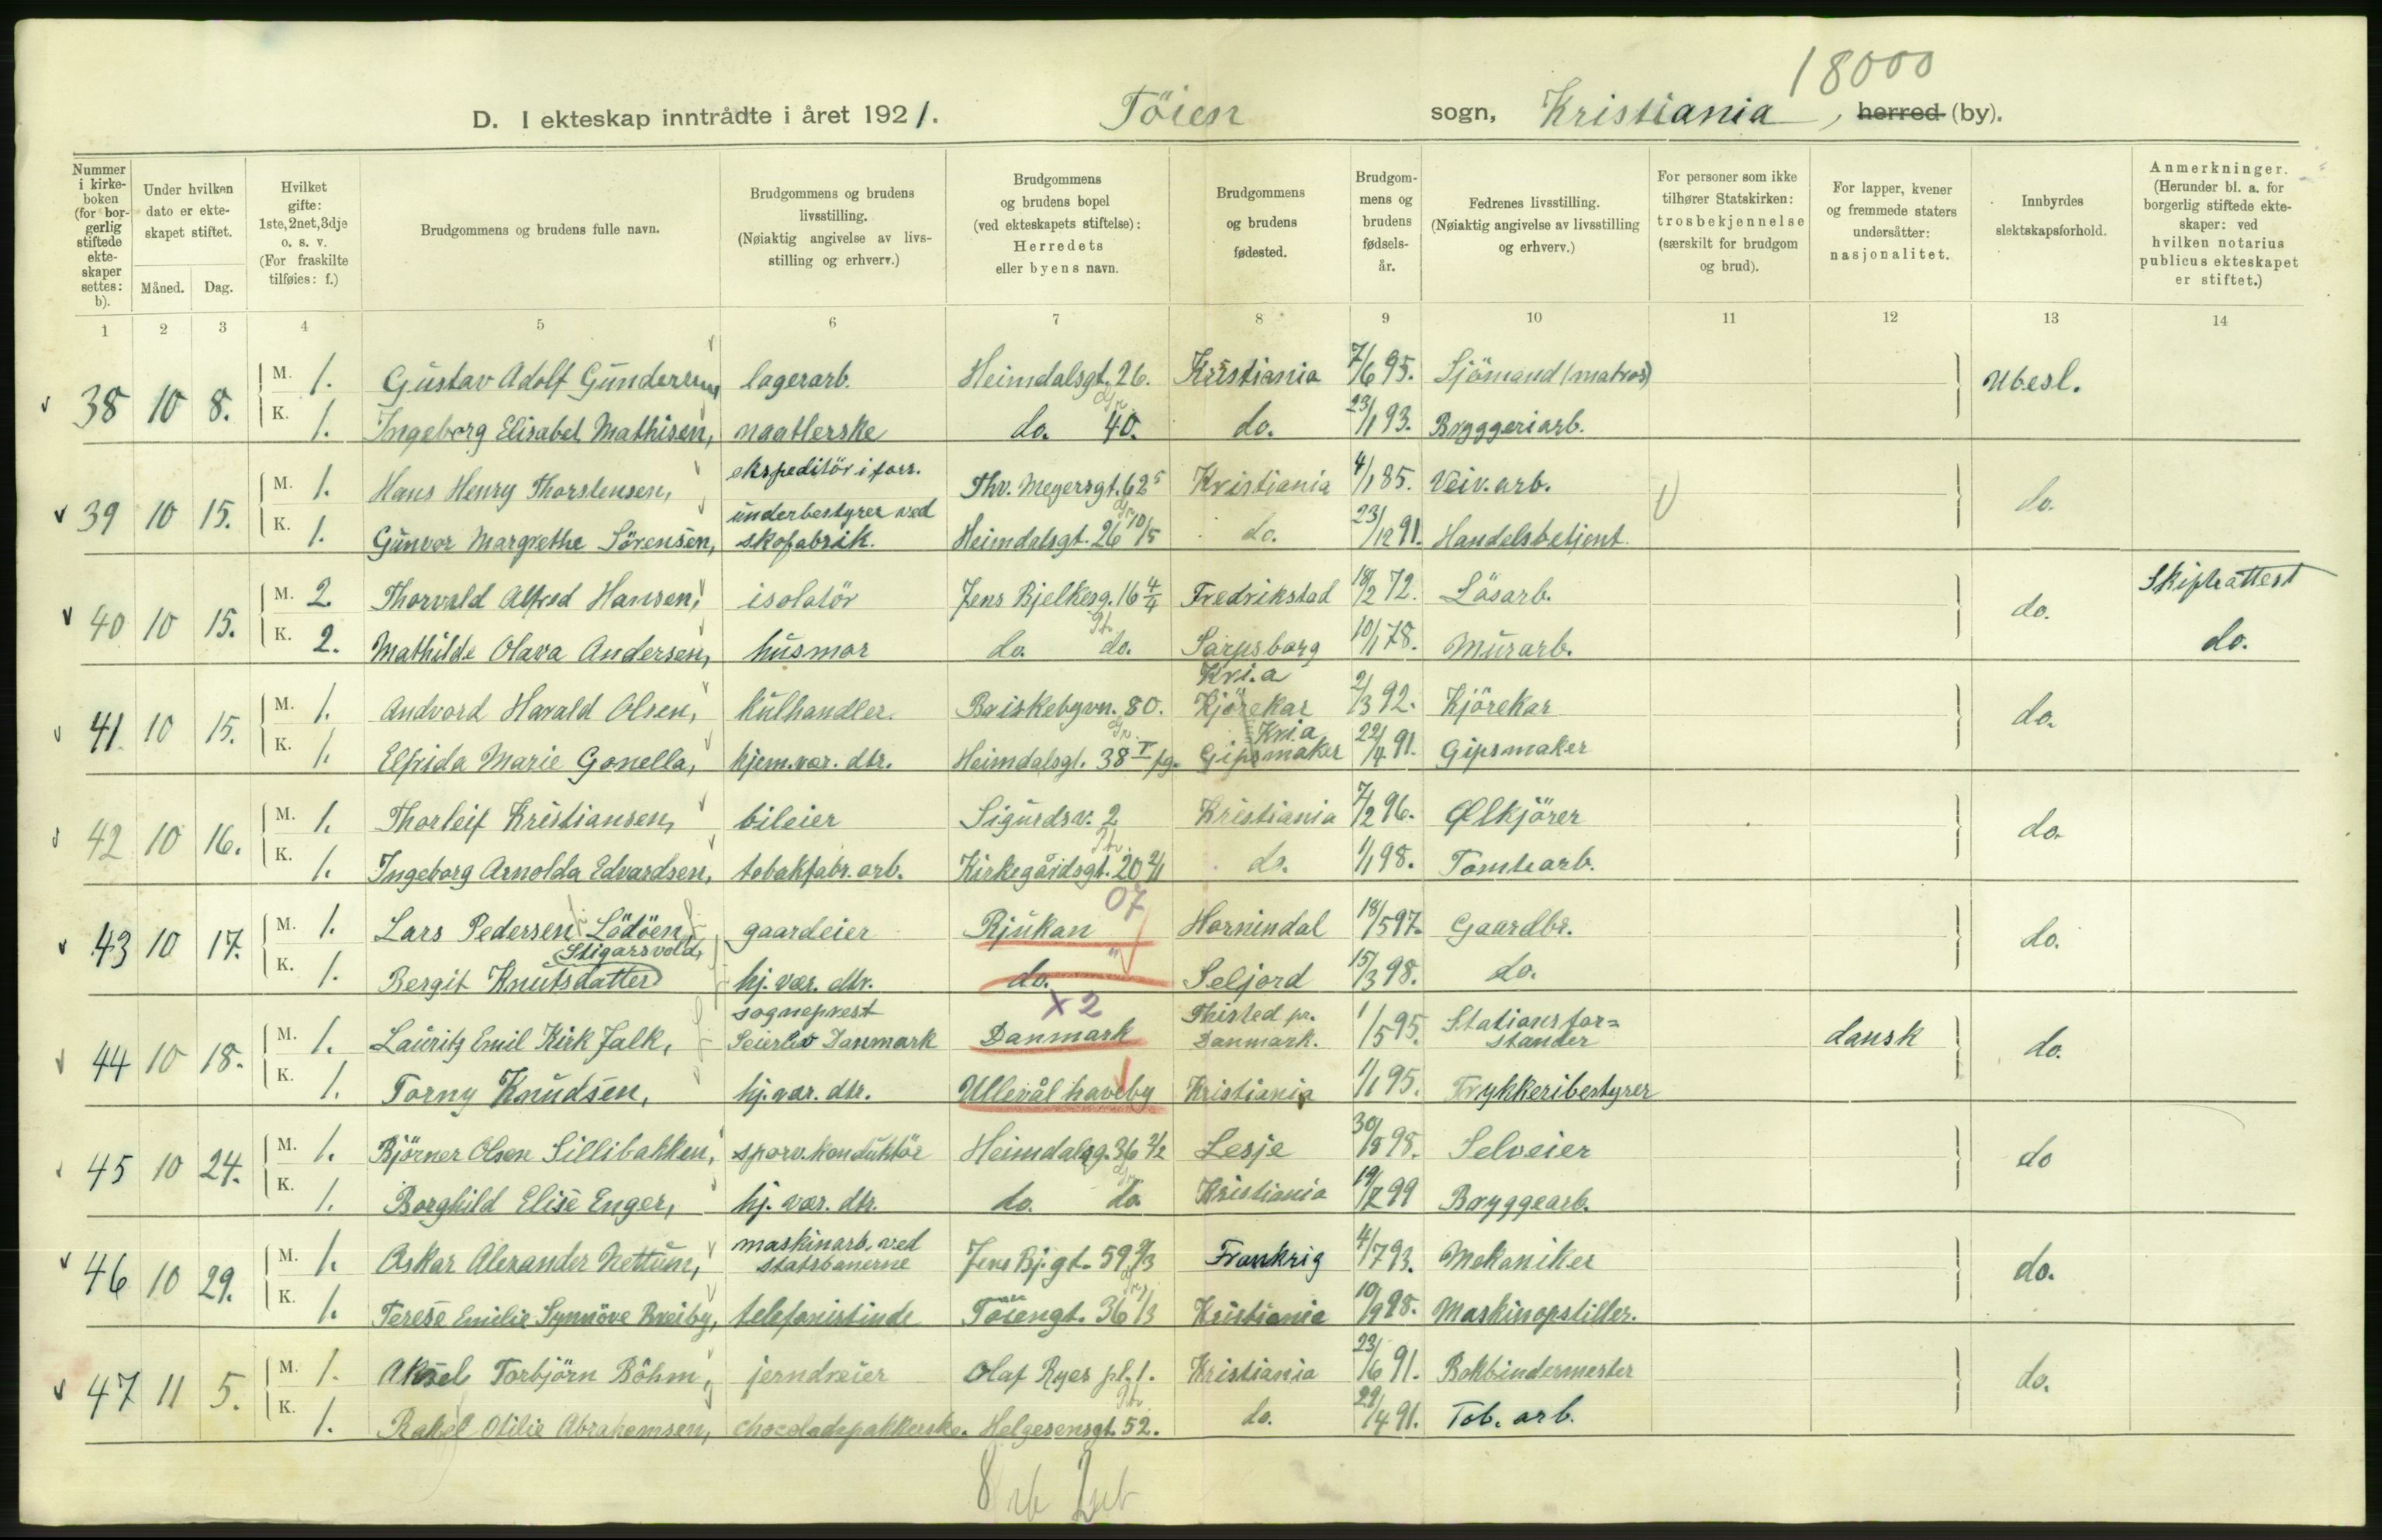 18000
D. I ekteskap inntrådte i året 1921. Töien sogn, Kristiania, herred (by).
Nummer i kirkeboken (for borgerlig stiftede ekteskaper settes: b).
Under hvilken dato er ekteskapet stiftet.
Måned. Dag.
Hvilket gifte: 1ste, 2net, 3dje o. s. v. (For fraskilte tilføies: f.)
Brudgommens og brudens fulle navn.
Brudgommens og brudens livsstilling. (Nøiaktig angivelse av livsstilling og erhverv.)
Brudgommens og brudens bopel (ved ekteskapets stiftelse): Herredets eller byens navn.
Brudgommens og brudens fødested.
Brudgommens og brudens fødselsår.
Fedrenes livsstilling. (Nøiaktig angivelse av livsstilling og erhverv.)
For personer som ikke tilhører Statskirken: trosbekjennelse (særskilt for brudgom og brud).
For lapper, kvener og fremmede staters undersåtter: nasjonalitet.
Innbyrdes slektskapsforhold.
Anmerkninger. (Herunder bl. a. for borgerlig stiftede ekteskaper: ved hvilken notarius publicus ekteskapet er stiftet.)
1 2 3 4 5 6 7 8 9 10 11 12 13 14
38 10 8. M. 1. Gustav Adolf Gundersen, lagerarb. Heimdalsgt. 26. Kristiania 7/6 95. Sjömand (matros) Ubesl.
K. 1. Ingeborg Elisabet Mathisen, naatlerske do. 40. do. 23/1 93. Bryggeriarb.
39 10 15. M. 1. Hans Henry Thorstensen, ekspeditör i forr. Thv. Meyersgt. 62 5 Kristiania 4/1 85. Veiv. arb. do.
K. 1. Gunvor Margrethe Sörensen, underbestyrer ved skofabrik. Heimdalsgt. 26 10/5 do. 23/12 91. Handelsbetjent
40 10 15. M. 2 Thorvald Alfred Hansen, isolatör Jens Bjelkesg. 16 4/4 Fredrikstad 18/2 72. Läsarb. do. Skifteattest
K. 2. Mathilde Olava Andersen, husmor do. do. Sarpsborg 10/1 78. Murarb. do.
41 10 15. M. 1. Andvord Harald Olsen, kulhandler. Briskebyvn. 80. Kjörekar Kri.a 2/3 92. Kjörekar do.
K. 1. Elfrida Marie Gonella, hjem.vær. dtr. Heimdalsgt. 38 V fg. Gipsmaker Kria 22/4 91. Gipsmaker
42 10 16. M. 1. Thorleif Kristiansen, bileier Sigurdsv. 2 Kristiania 7/2 96. Ølkjörer do.
K. 1. Ingeborg Arnolda Edvardsen, tobakfabr. arb. Kirkegårdsgt. 20 2/1 do. 1/1 98. Tomtearb.
43 10 17. M. 1. Lars Pedersen Lödöen, gaardeier Rjukan 07 Hornindal 18/5 97. Gaardbr. do.
K. 1. Bergit Knutsdatter Stigarsvold, hj. vær. dtr. do. Seljord 15/3 98. do.
44 10 18. M. 1. Lauritz Emil Kirk Falk, sogneprest Seierlev Danmark Danmark x2 Thisted pr. Danmark. 1/5 95. Stationsforstander dansk do.
K. 1. Torny Knudsen, hj. vær. dtr. Ullevål haveby Kristiania 1/1 95. Trykkeribestyrer
45 10 24. M. 1. Björner Olsen Sillibakken, sporv. konduktör Heimdalsg. 36 2/2 Lesje 30/8 98. Selveier do
K. 1. Borghild Elise Enger, hj. vær. dtr. do. do. Kristiania 19/7 99 Bryggearb.
46 10 29. M. 1. Oskar Alexander Nettum, maskinarb. ved statsbanerne Jens Bj. gt. 59 2/3 Frankrig 4/7 93. Mekaniker do.
K. 1. Terese Emilie Synnöve Breiby, telefonistinde Töiengt. 36 1/3 Kristiania 10/9 98. Maskinopstiller.
47 11 5. M. 1. Aksel Torbjörn Böhm, jerndreier Olaf Ryes pl. 1. Kristiania 23/6 91. Bokbindermester do.
K. 1. Rakel Otilie Abrahamsen, chocoladepakkerske. Helgesensgt. 52. do. 29/4 91. Tob. arb.